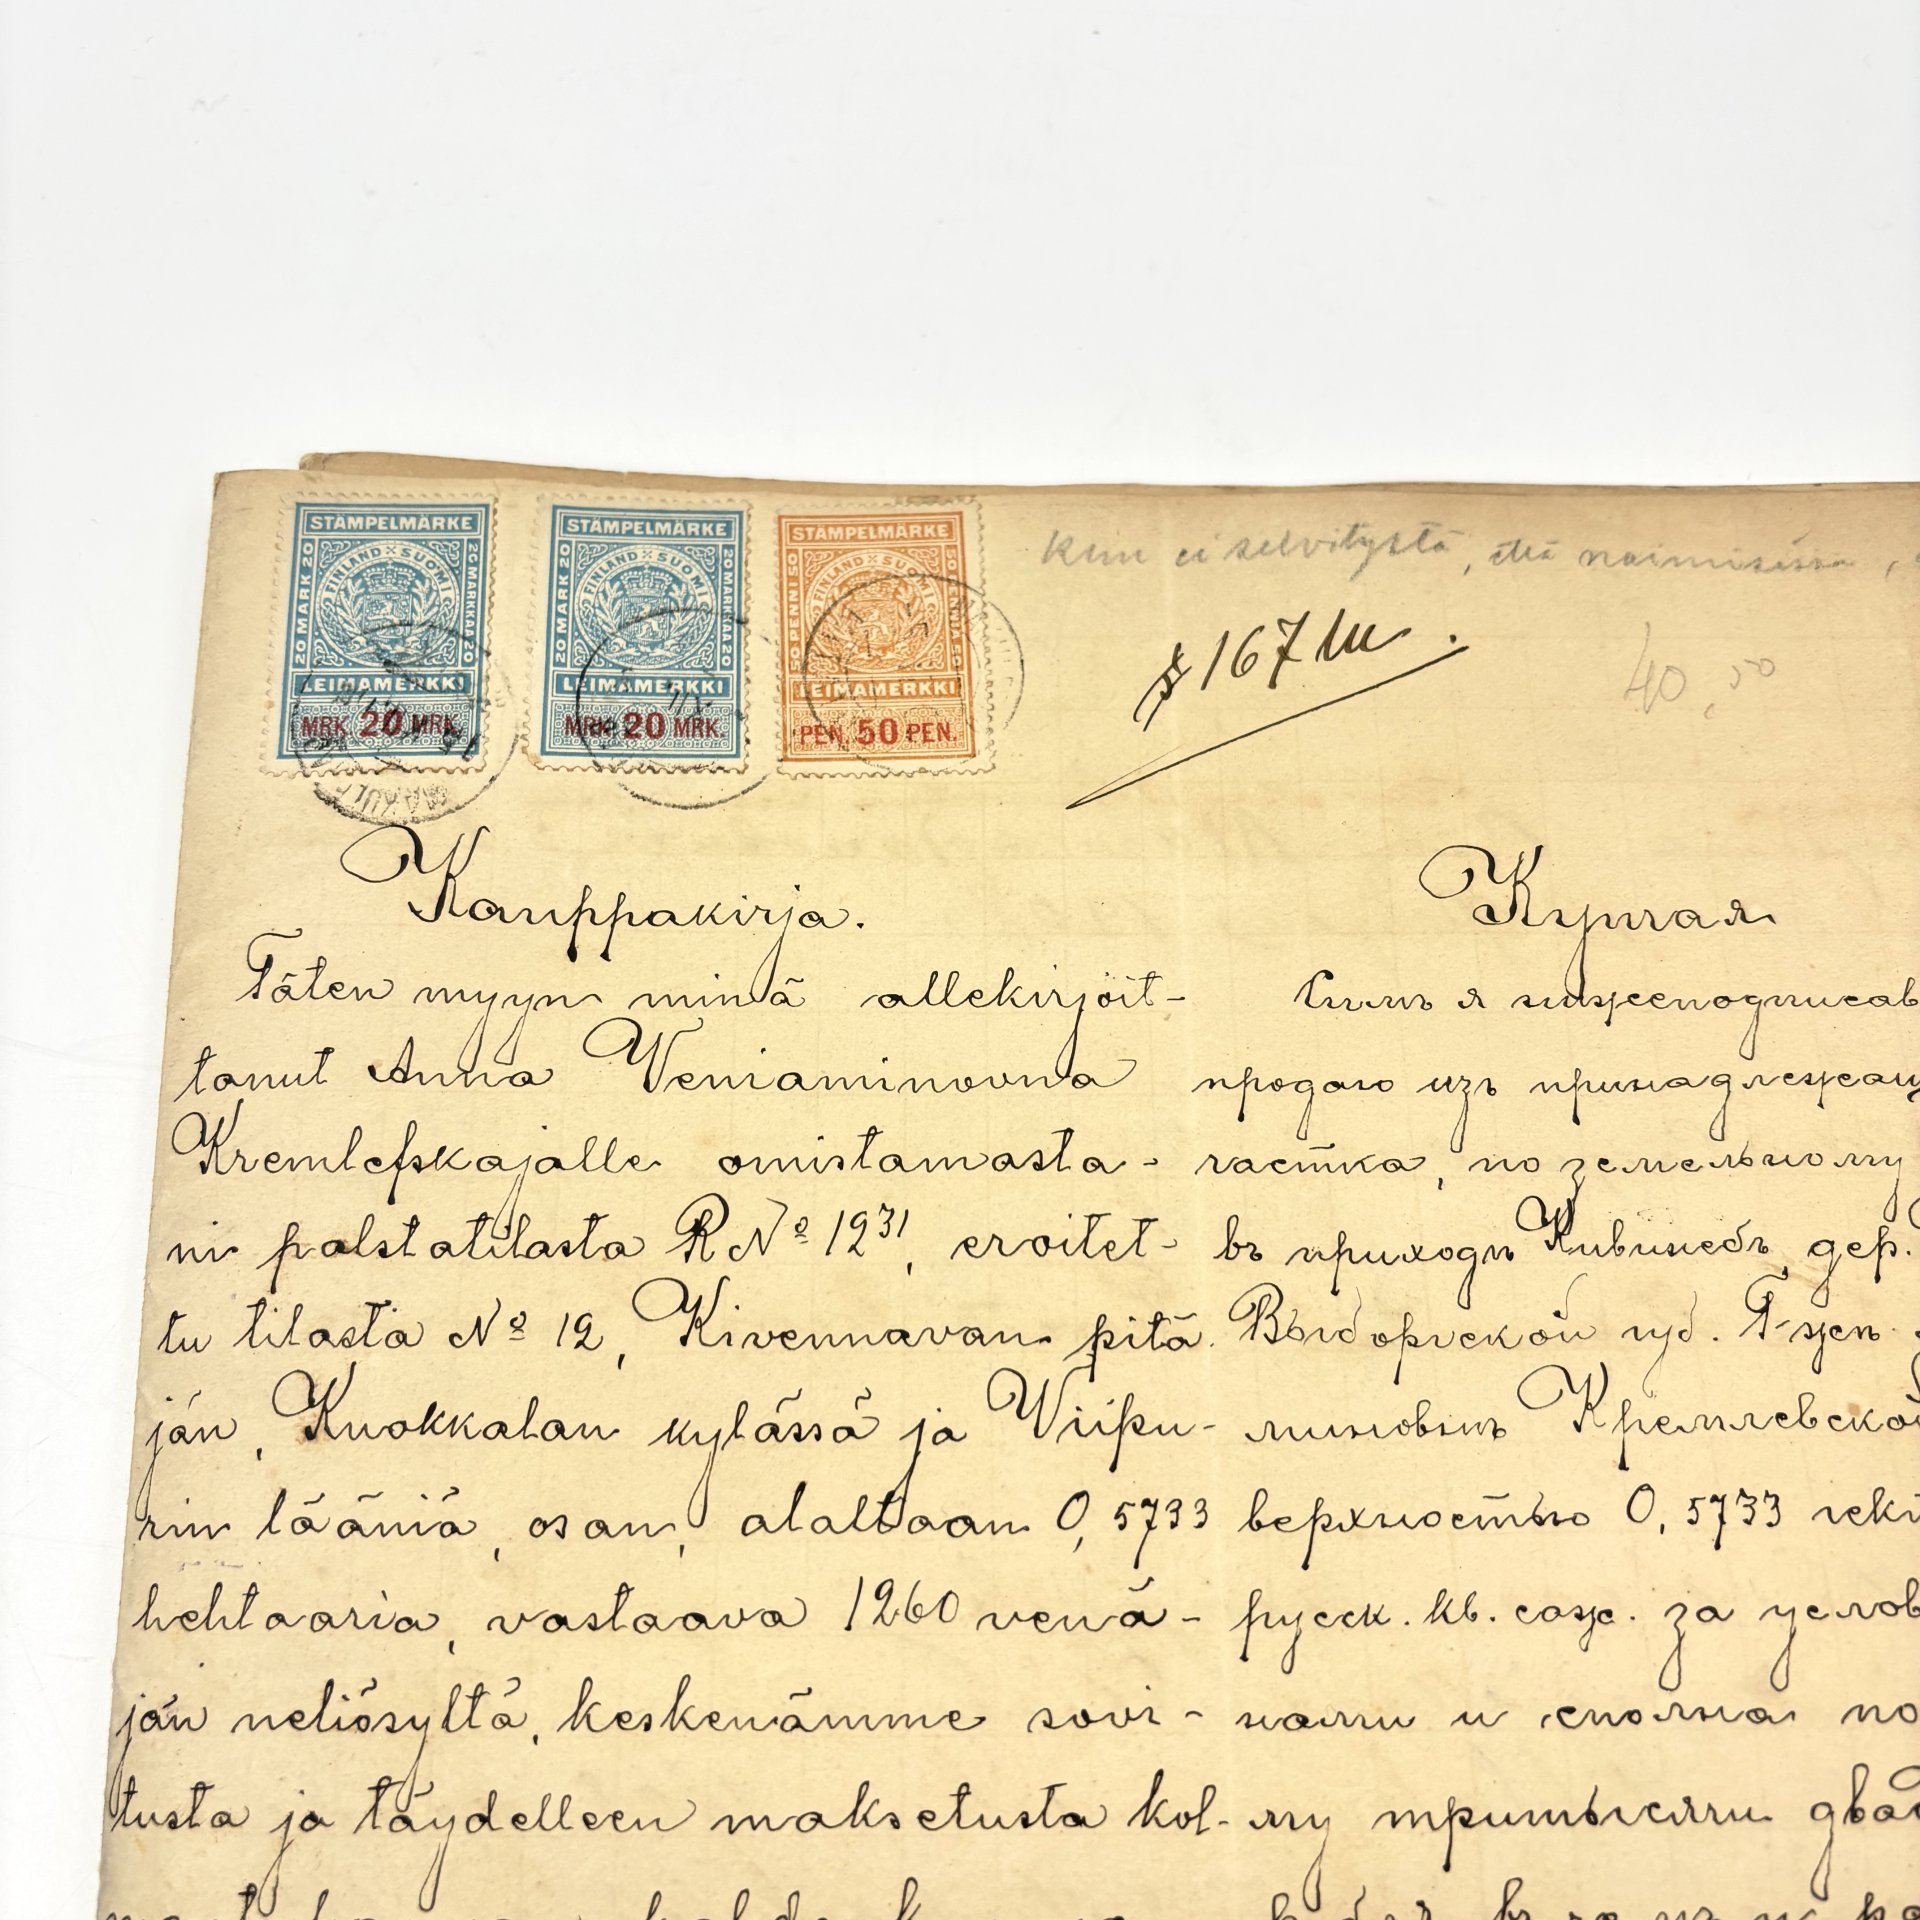 STÄMPELMÄRKE
FINLAND × SUOMI
20 MARK 20
20 MARKKAA 20
LEIMAMERKKI
MRK. 20 MRK.
STÄMPELMÄRKE
FINLAND × SUOMI
20 MARK 20
20 MARKKAA 20
LEIMAMERKKI
MRK. 20 MRK.
STÄMPELMÄRKE
FINLAND × SUOMI
50 PENNI 50
50 PENNIÄ 50
LEIMAMERKKI
PEN. 50 PEN.
ei selvitystä, että naimisissa,
§ 167 
40,50
Kauppakirja.
Täten myyn minä allekirjoit-
tanut Anna Veniaminovna
Kremlefskajalle omistamasta-
ni palstatilasta R№ 12³¹, eroitet-
tu tilasta № 12, Kivennavan pitä-
jän, Kuokkalan kylässä ja Wiipu-
rin lääniä, osan, alaltaan 0,5733
hehtaaria, vastaava 1260 venä-
jän neliösyltä, keskenämme sovi-
tusta ja täydelleen maksetusta kol-
Купчая
Симъ я нижеподписав
продаю изъ принадлежащ
частка, по земельному
въ приходѣ Кивинебъ, дер.
Выборгской губ. Г-жѣ
миновнѣ Кремлевской
верхностью 0,5733 гект
русск. кв. саж. за услов
нами и сполна по
му тритысячи двад